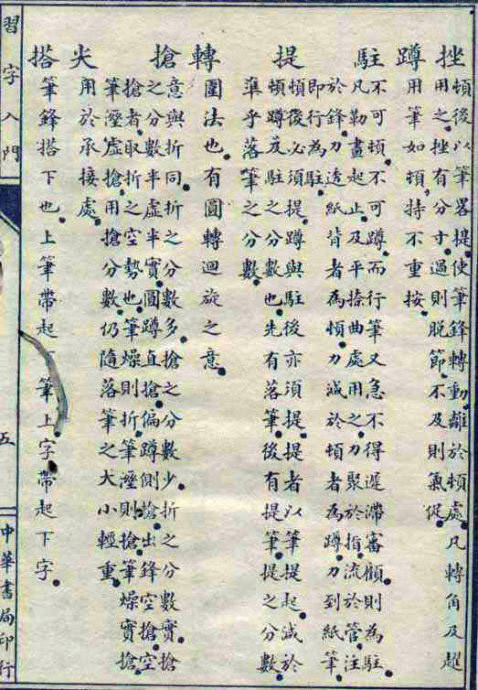 挫 頓後以筆畧提使筆鋒轉動離於頓處。凡轉角及趯
用之。挫有分寸。過則脱節。不及則氣促。
蹲 用筆如頓。特不重按。
駐 不可頓。不可蹲。而行筆又急不得遲滯審顧則為駐。
凡勒畫起止。及平捺曲處用之。力聚於指。流於管。注
於鋒。力透紙背者為頓。力減於頓者為蹲。力到紙筆
即行為駐。
提 頓後必須提。蹲與駐後亦須提。提者以筆提起。減於
頓蹲及駐之分數也。先有落筆。後有提筆。提之分數。
準乎落筆之分數。
轉 圓法也。有圓轉迴旋之意。
搶 意與折同。折之分數多。搶之分數少。折之分數實。搶
之分數半虛半實。圓蹲直搶。偏蹲側搶。出鋒空搶。空
搶者取折之空勢也。筆燥則折。筆溼則搶。筆燥實搶。
筆溼虛搶。用搶分數。仍隨落筆之大小輕重。
尖 用於承接處。
搭 筆鋒搭下也。上筆帶起下筆。上字帶起下字。
習字入門
五
中華書局印行